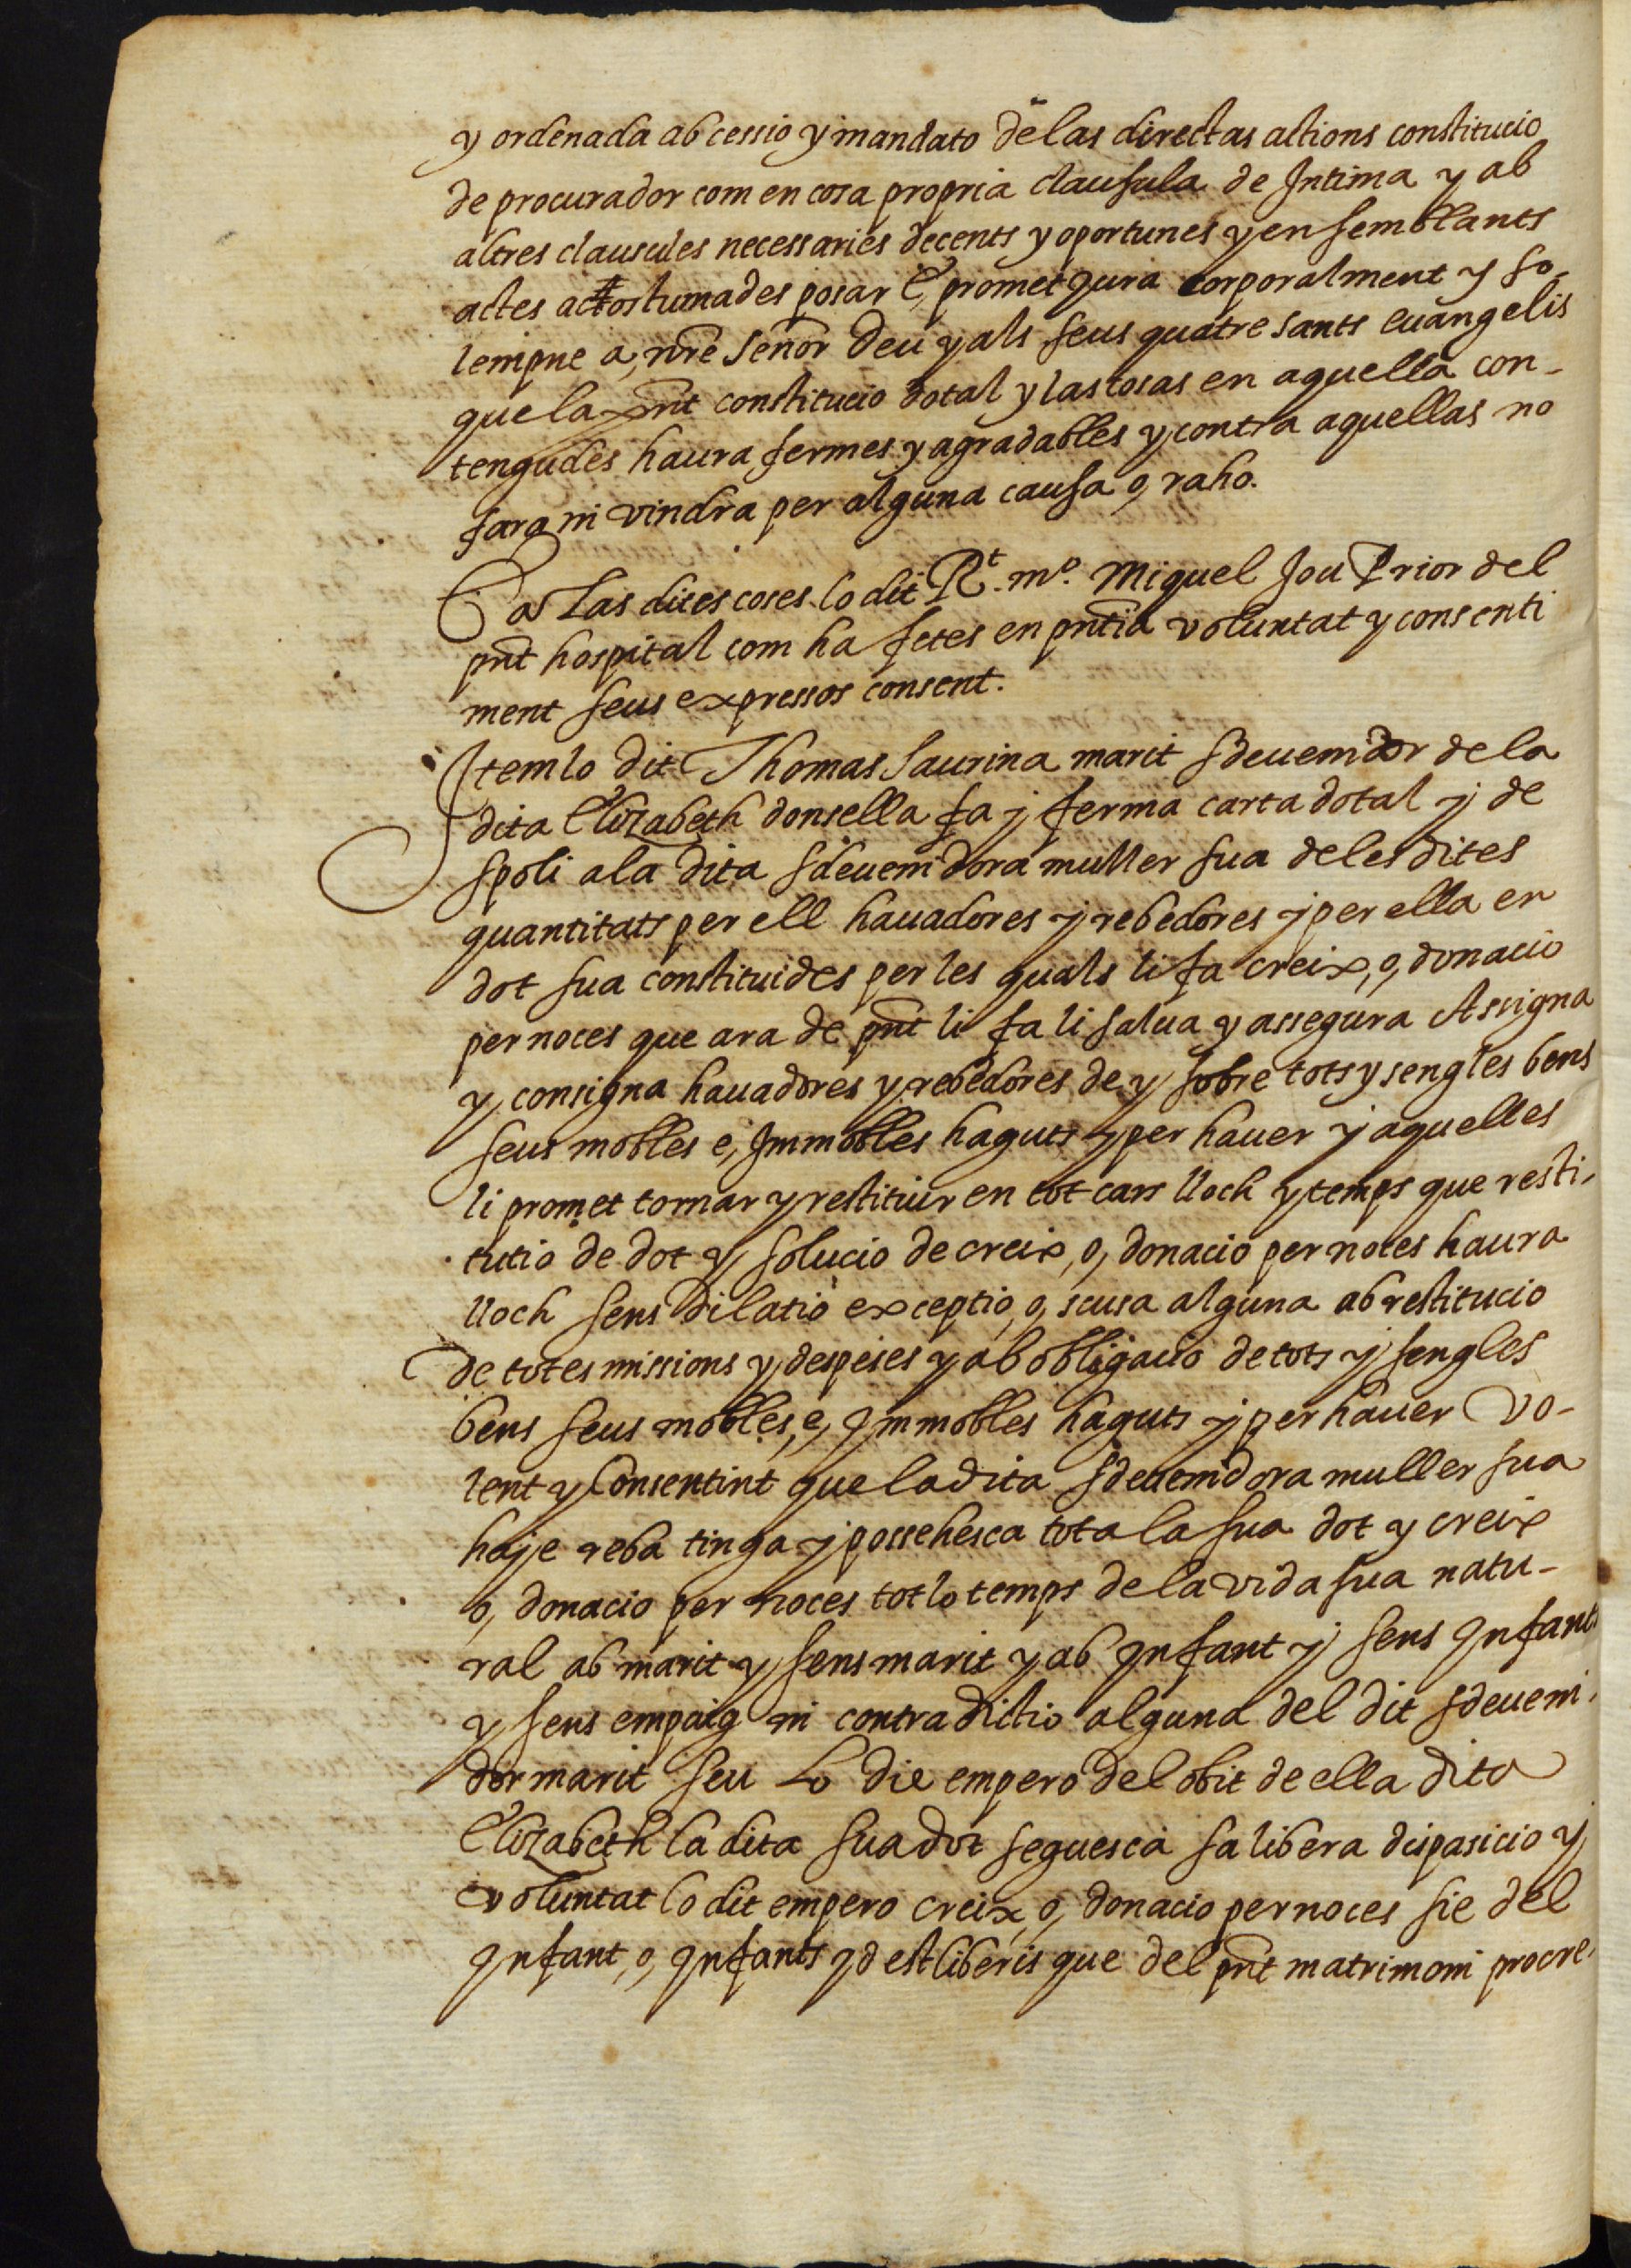 y ordenada ab cessio y mandato de las directas actions constitucio
de procurador com en cosa propria clausula de Intima y ab
altres clausules necessaries decents y oportunes y en semblants
actes actostumades posar E, promet y jura corporalment y so-
lempne a, nre Senor Deu y als seus quatre sants euangelis
que la pnt constitucio dotal y las cosas en aquella con-
tengudes haura fermes y agradables y contra aquellas no
fara ni vindra per alguna causa o, raho.
E a las dites coses lo dit Rt. mo. Miquel Jou Prior del
pnt hospital com ha fetes en pntia voluntat y consenti
ment seus expressos consent.
Item lo dit Thomas Saurina marit sdeuenidor de la
dita Elizabeth donsella fa y ferma carta dotal y de
spoli a la dita sdeuenidora muller sua de les dites
quantitats per ell hauadores y rebedores y per ella en
dot sua constituides per les quals li fa creix, o, donacio
per noces que ara de pnt li fa li salua y assegura Assigna
y consigna hauadores y rebedores de y sobre tots y sengles bens
seus mobles e, Immobles haguts y per hauer y aquelles
li promet tornar y restituir en tot cars lloch y temps que resti-
tutio de dot y solucio de creix, o, donacio per noces haura
lloch sens dilatio exceptio, o, scusa alguna ab restitucio
de totes missions y despeses y ab obligacio de tots y sengles
bens seus mobles, e, Immobles haguts y per hauer Vo-
lent y Consentint que la dita sdeuenidora muller sua
haje reba tinga y possehesca tota la sua dot y creix
o, donacio per noces tot lo temps de la vida sua natu-
ral ab marit y sens marit y ab Infant y sens Infants
y sens empaig ni contradictio alguna del dit sdeueni-
dor marit seu Lo die empero del obit de ella dita
Elizabeth la dita sua dot seguesca sa libera dispasicio y
voluntat lo dit empero creix, o, donacio per noces sie del
Infant, o, Infants Id est liberis que del pnt matrimoni procre-